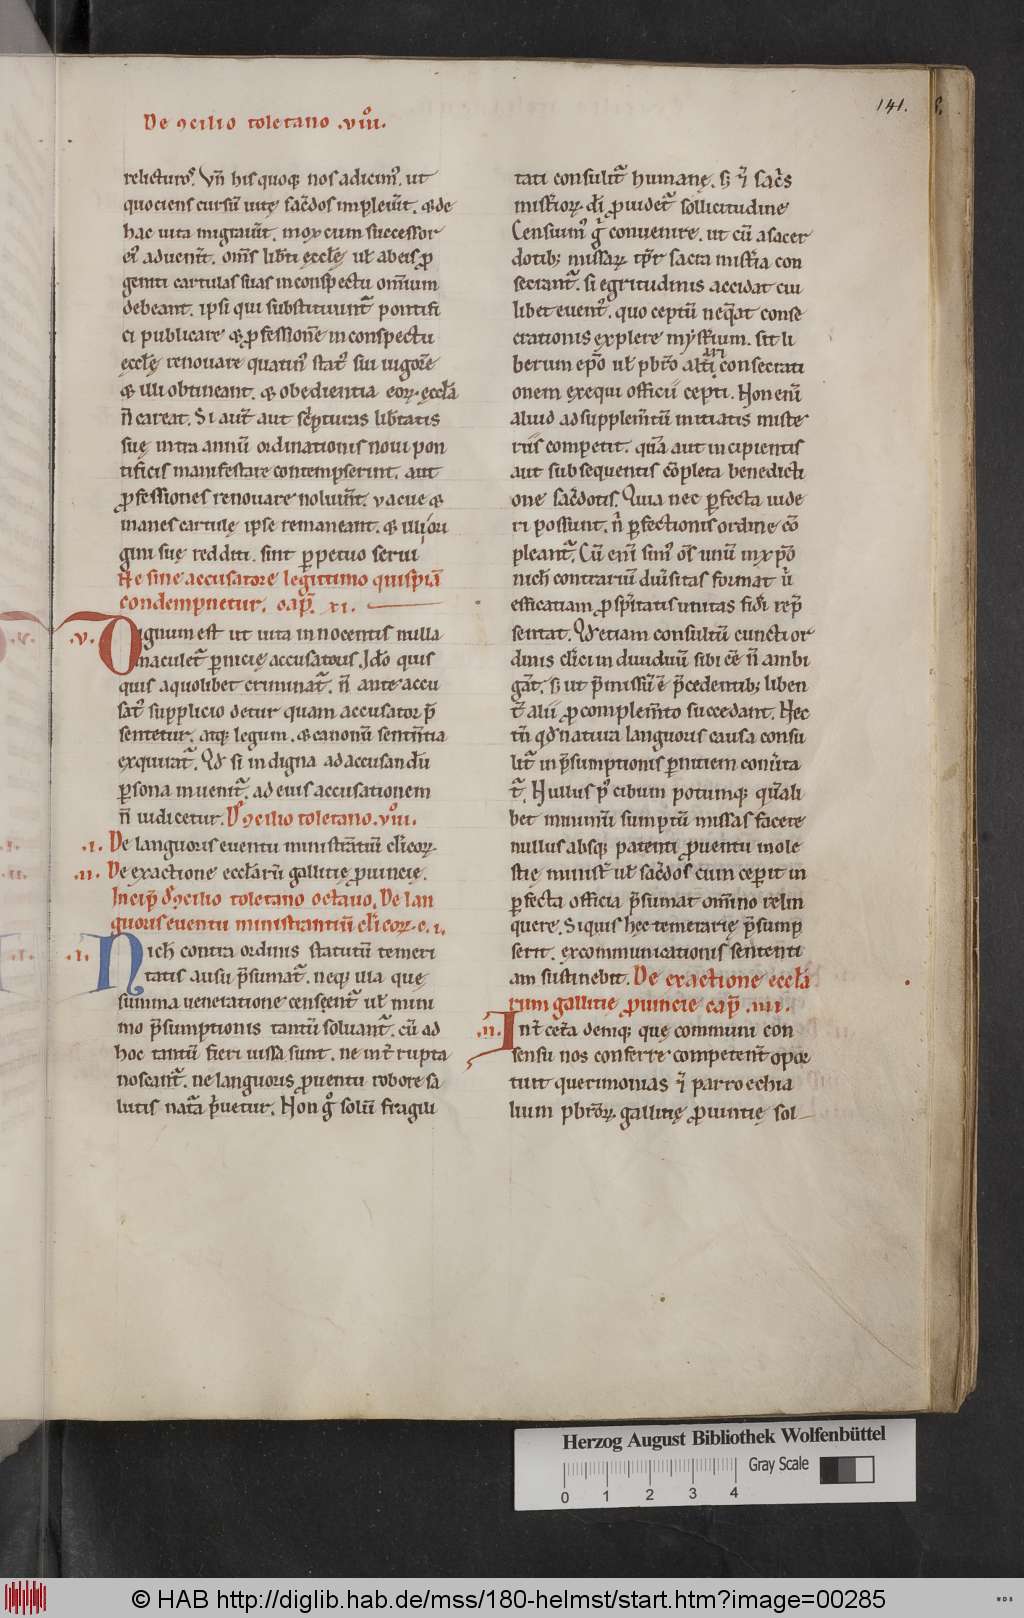 141.
De ɔcilio toletano .viii.
relicturoꝰ. Vn̄ his quoq; nos adicimꝰ. ut
quociens cursū uitę sac̄dos impleuīt. & de
hac uita migrauīt. mox cum successor
eiꝰ aduenīt. om̄s lib̄ti ęccl̄ę uł ab eis ꝓ
geniti cartulas suas in conspectu om̄ium
debeant. ipsi qui substituunt̄ pontifi
ci publicare & ꝓfession̄e in conspectu
ęccl̄ę renouare quatinꝰ statꝰ sui uigorē
& illi obtineant. & obedientia eoꝝ ęccl̄a
n̄ careat. Si aut̄ aut scripturas lib̄tatis
suę intra annū ordinationis noui pon
tificis manifestare contempserint. aut
ꝓfessiones renouare noluīnt. vacue &
inanes cartulę ipse remaneant. & illi ori
gini suę redditi. sint ꝑpetuo serui
Ne sine accusatore legittimo quispiā
condempnetur. cap̄. xi.
.v. Dignum est ut uita innocentis nulla
maculet̄ ꝑnicię accusatoris. Id̄o quis
quis a quolibet criminat̄. n̄ ante accu
satꝰ supplicio detur quam accusator p̄
sentetur. atq; legum. & canonū sentn̄tia
exquirat̄. Qd̄ si indigna ad accusandū
ꝑsona inuenit̄. ad eius accusationem
n̄ iudicetur. D̄ ɔcilio toletano .viii.
.i. De languoris euentu ministrātiū cl̄icoꝝ
.ii. De exactione eccl̄arū gallitię ꝓuincię.
Incip̄ d̄ ɔcilio toletano octauo. De lan
guoris euentu ministrantiū cl̄icoꝝ. c. i.
.i. Nich̄ contra ordinis statutū temeri
tatis ausu p̄sumat̄. neq; illa quę
summa ueneratione censęent̄ uł mini
mo p̄sumptionis tantū soluant̄. cū ad
hoc tantū fieri iussa sunt. ne int̄rupta
noscant̄. ne languoris ꝓuentu robore sa
lutis nat̄a p̄uetur. Non g̊ solū fragili
tati consulit̄ humanę. sꝫ & sac̄s
mist̄ioꝝ. di ꝓuidet̄ sollicitudine
Censuimꝰ g̊ conuenire. ut cū a sacer
dotib; missaꝝ tp̄r sacra mist̄ia con
secrant̄. si egritudinis accidat cui
libet euentꝰ. quo ceptū neq̄at conse
crationis explere myst̄ium. sit li
berum ep̄o uł pb̄ro alt̄i consecrati
onem exequi officii cepti. Non enī
aliud ad supplem̄tū initiatis miste
riis competit. quā aut incipientis
aut subsequentis cōpleta benedicti
one sac̄dotis. Quia nec ꝑfecta uide
ri possunt. n̄ ꝑfectionis ordine cō
pleant̄. Cū enī simꝰ om̄s unū in xp̄o
nich̄ contrariū diu̅sitas format u̇
efficatiam ꝓsp̄itatis unitas fid̄i rep̄
sentat. Qd̄ etiam consultū cuncti or
dinis cl̄ici in diuiduū sibi ēē n̄ ambi
gāt. sꝫ ut p̄missū ē p̄cedentib; liben
t̄ alii ꝓ complem̄to succedant. Nec
tn̄ qd̄ natura languoris causa consu
lit̄ in p̄sumptionis ꝑnitiem conūta
t̄. Nullus pꝰ cibum potumq; quāli
bet minimū sumptū missas facere
nullus absq; patenti ꝓuentu mole
stię minist̄ uł sac̄dos cum ceperit in
ꝑfecta officia p̄sumat om̄ino relin
quere. Siquis hęc temerarię p̄sump
serit. excommunicationis sententi
am sustinebit. De exactione eccl̄a
rum gallitie ꝓuincie cap̄ .iii.
.ii. Int̄ cet̄a deniq; quę communi con
sensu nos conferre competent̄ opor
tuit querimonias & parroechia
lium pb̄roꝝ gallitię ꝓuintię sol
Herzog August Bibliothek Wolfenbüttel
Gray Scale
0 1 2 3 4
© HAB http://diglib.hab.de/mss/180-helmst/start.htm?image=00285